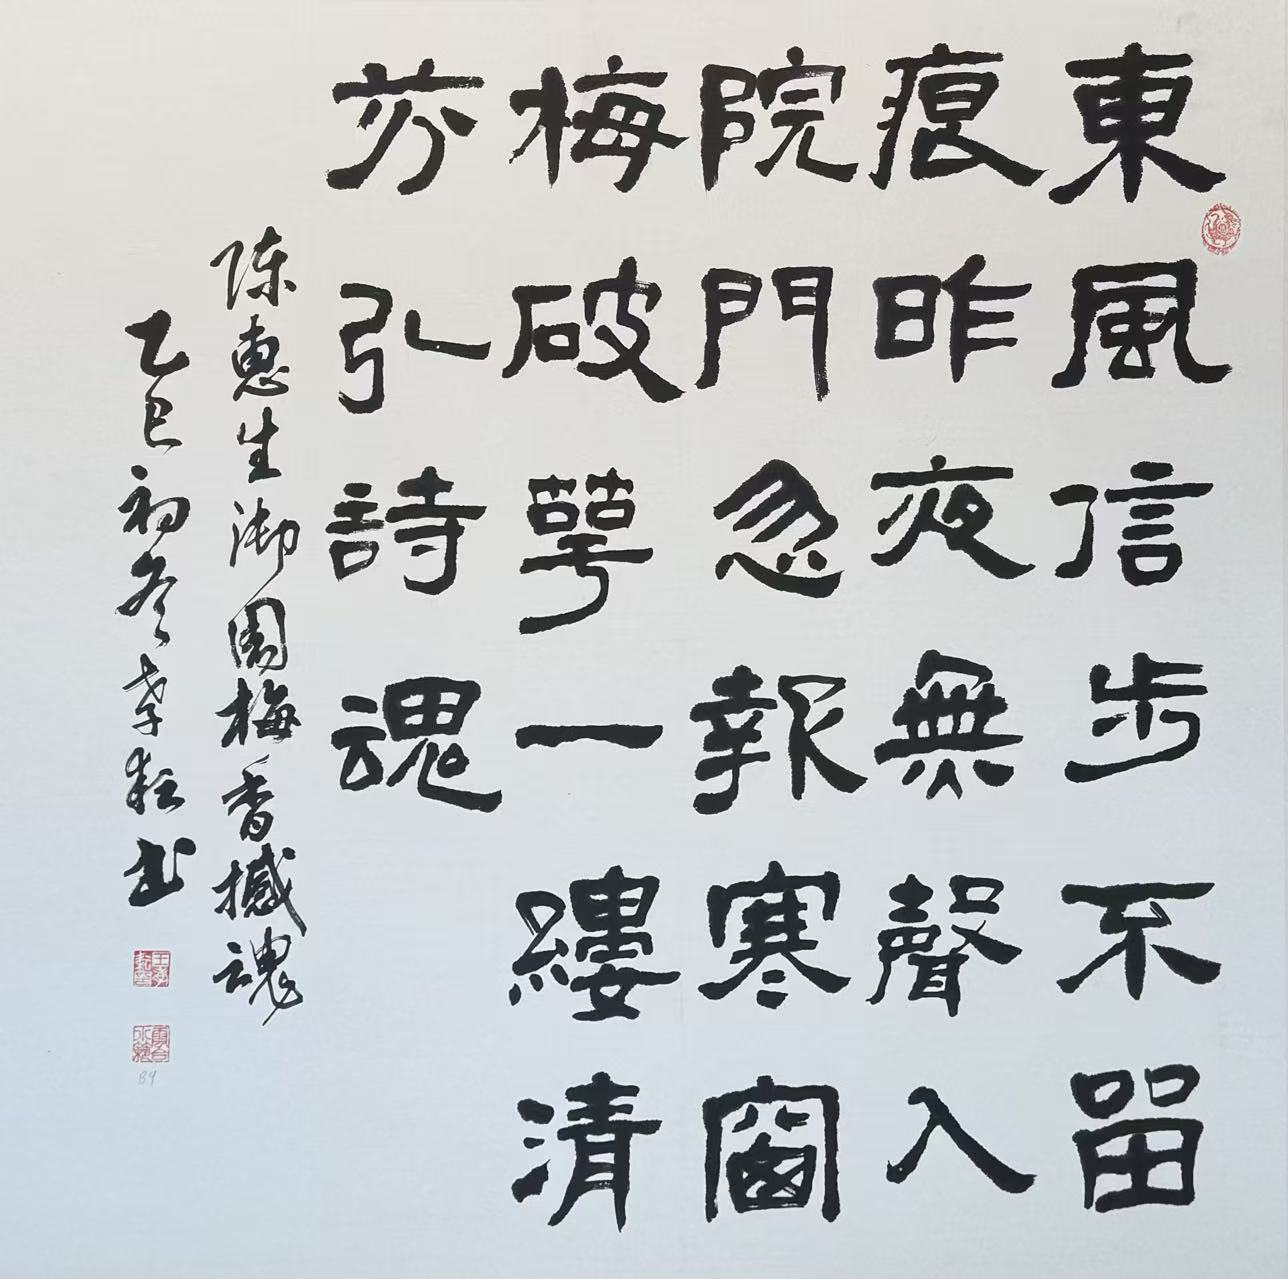 東風信步不留
痕昨夜無聲入
院門忽報寒窗
梅破萼一縷清
芬弘詩魂
陈惠生御園梅香撼魂
乙巳初冬孝书
B9